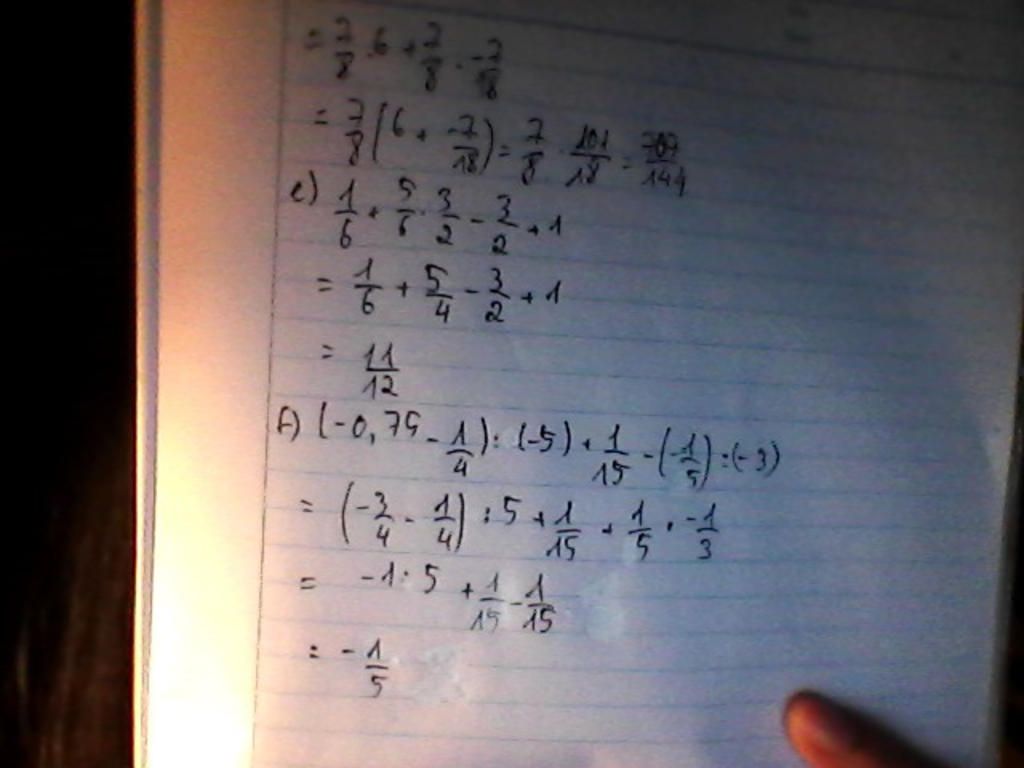 = 7/8 . 6 + 7/8 . -7/18
= 7/8 (6 + -7/18) = 7/8 . 101/18 = 707/144
e) 1/6 + 5/6 . 3/2 - 3/2 + 1
= 1/6 + 5/4 - 3/2 + 1
= 11/12
f) (-0,75 - 1/4) : (-5) + 1/15 - (-1/5) : (-3)
= (-3/4 - 1/4) : 5 + 1/15 + 1/5 . -1/3
= -1 : 5 + 1/15 - 1/15
= - 1/5